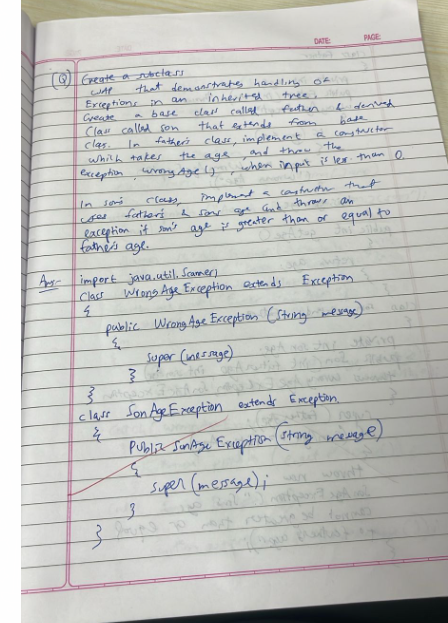 DATE: PAGE:
(Q) Create a subclass
WAP that demonstrates handling of
Exceptions in an inherited tree.
Create a base class called father & derived
Class called son that extends from base
class. In father's class, implement a constructor
which takes the age and throw the
exception, wrong Age(), when input is less than 0
In son's class, implement a constructor that
father's & sons age and throws an
exception if son's age is greater than or equal to
father's age.
Ans- import java.util.Scanner;
Class WrongAge Exception extends Exception
{
public WrongAge Exception (String message)
{
super (message)
}
}
class SonAgeException extends Exception
{
Public SonAge Exception (String message)
{
super (message);
}
}